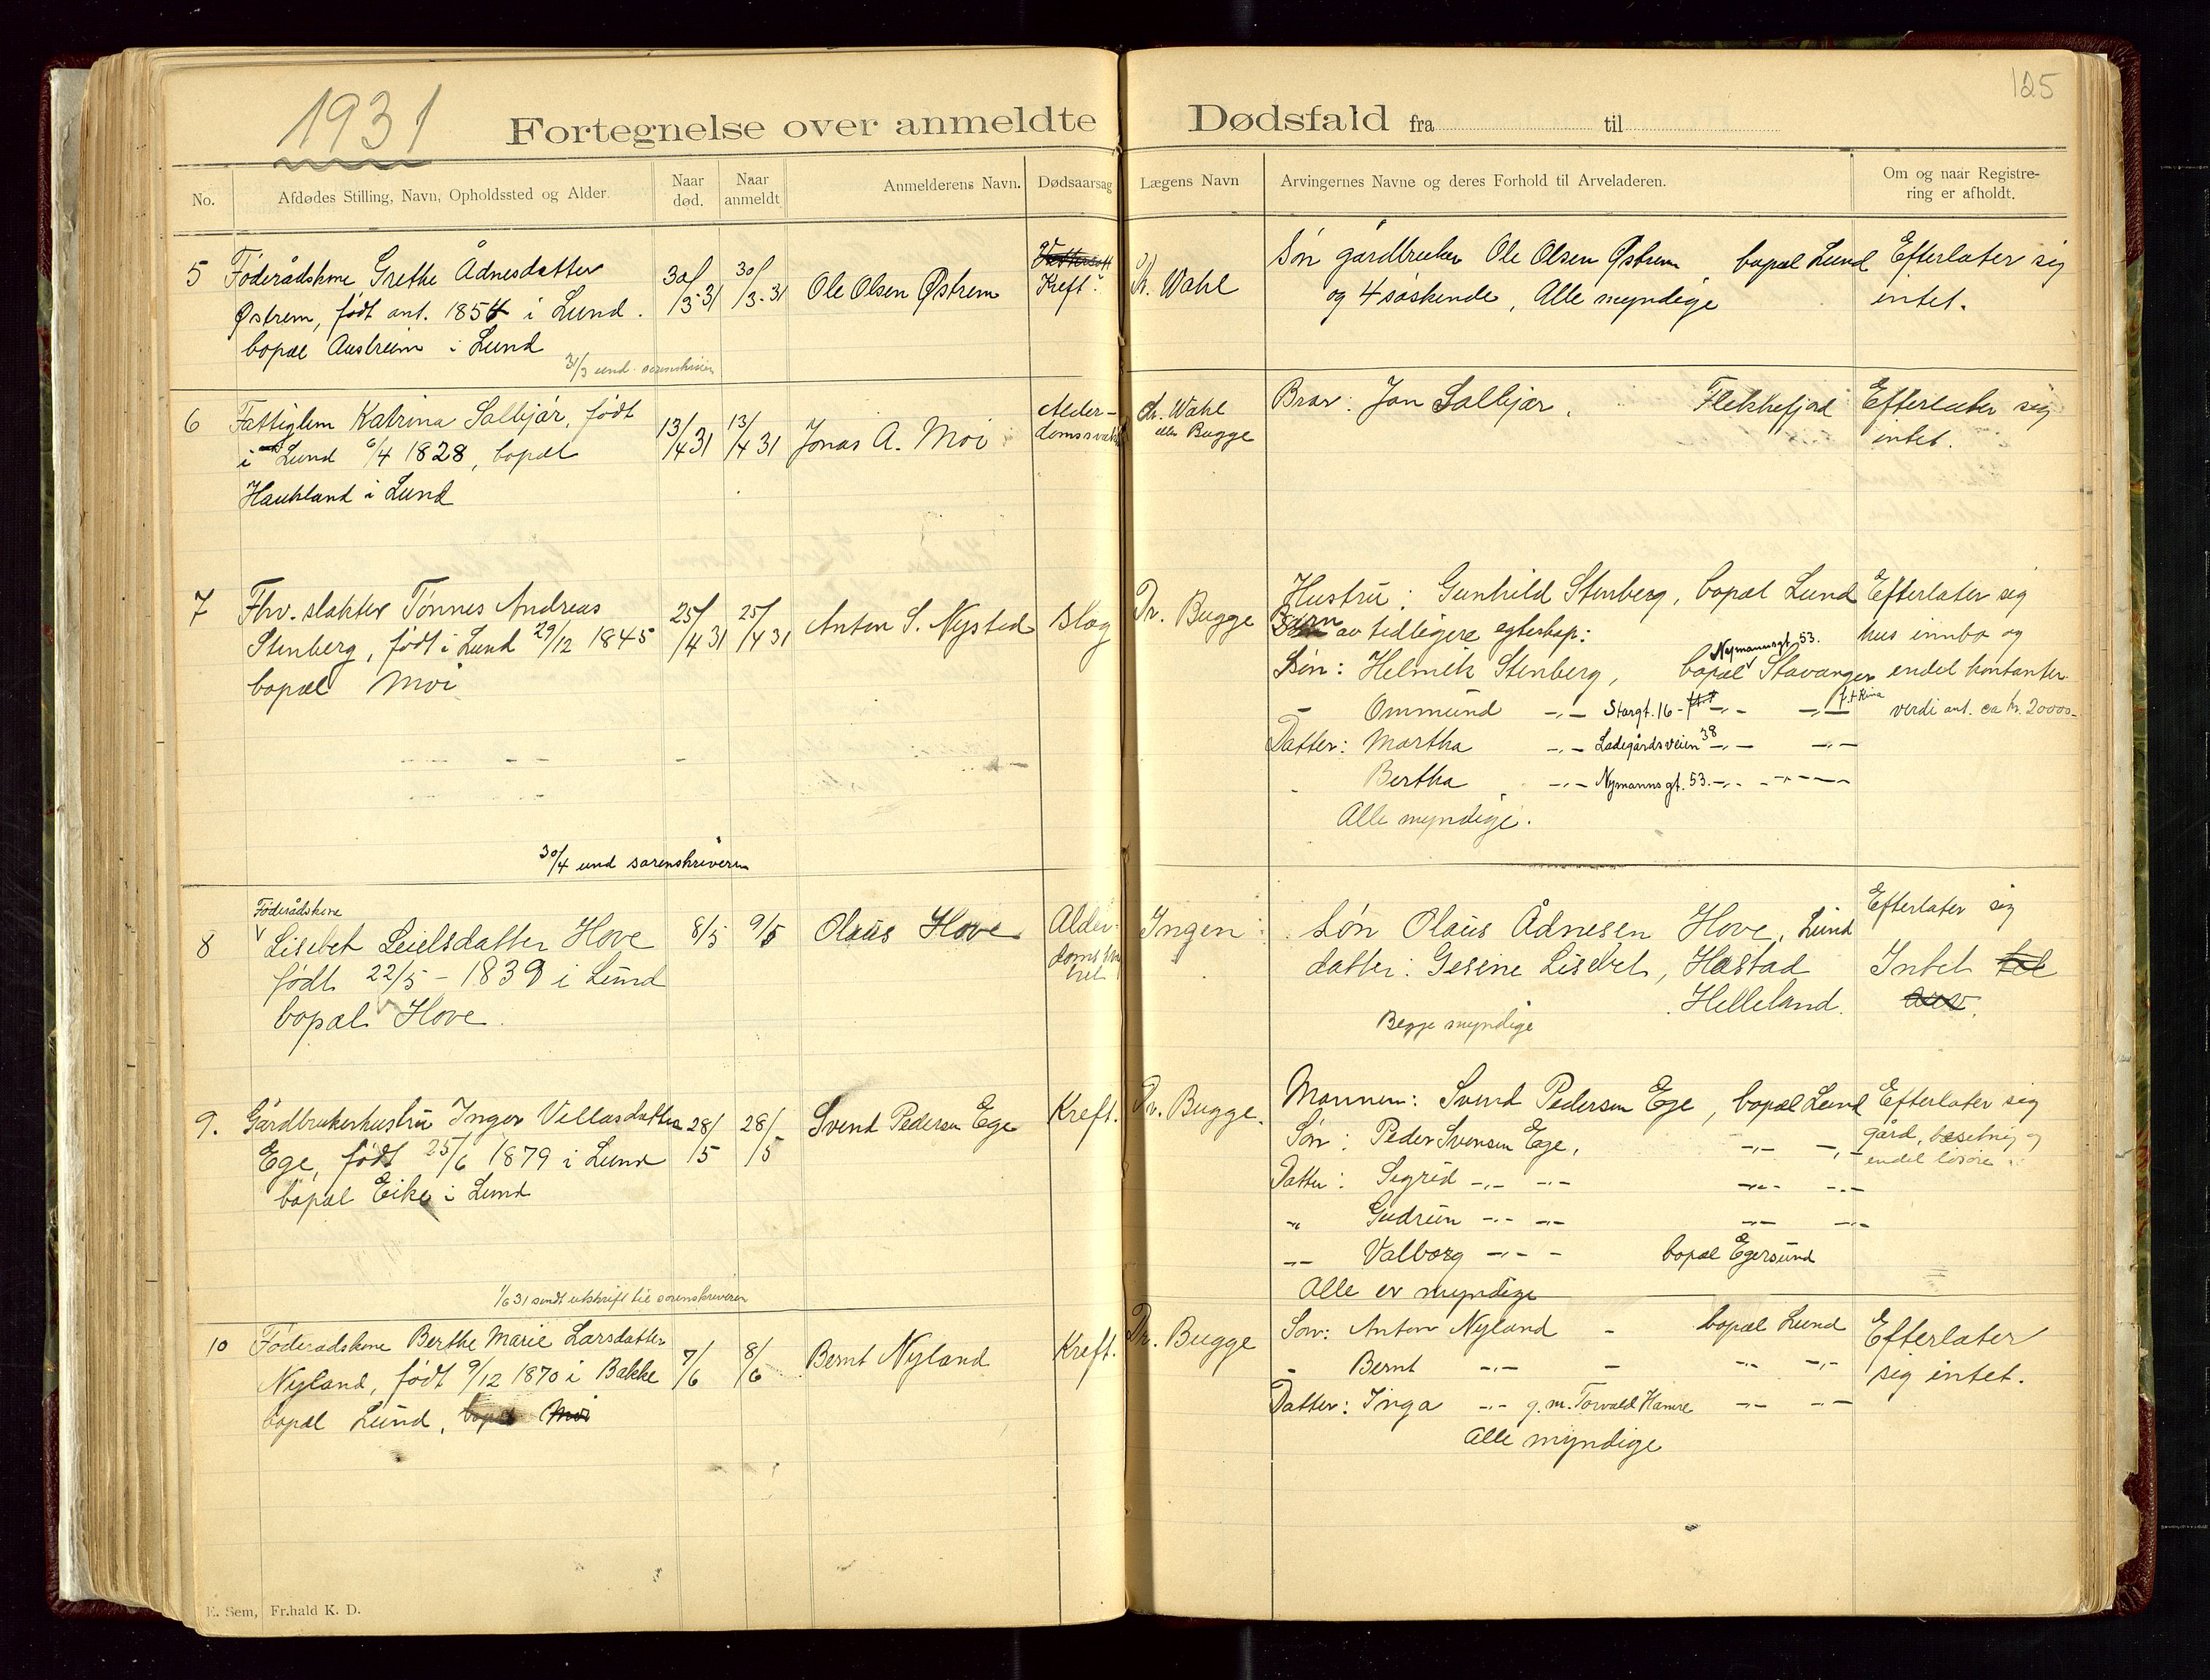 1931
125
Fortegnelse over anmeldte Dødsfald fra til
No.
Afdødes Stilling, Navn, Opholdssted og Alder.
Naar død.
Naar anmeldt
Anmelderens Navn.
Dødsaarsag
Lægens Navn
Arvingernes Navne og deres Forhold til Arveladeren.
Om og naar Registrering er afholdt.
5 Føderådskone Grethe Ådnesdatter
Østrem, født ant. 1854 i Lund.
bopæl Austreim i Lund
31/3 und. sorenskriveren
30/3-31
30/3-31
Ole Olsen Østrem
Kreft.
Dr. Wahl
Søn gårdbruker Ole Olsen Østrem, bopæl Lund
og 4 søskende, Alle myndige
Efterlater sig
intet.
6 Fattiglem Katrina Salbjør, født
i Lund 6/4 1828, bopæl
Haukland i Lund
13/4 31
13/4 31
Jonas A. Moi
Alder-
domssvakh
Dr. Wahl
eller Bugge
Bror: Jan Salbjør, Flekkefjord
Efterlater sig
intet.
7 Fhv. slakter Tønnes Andreas
Stenberg, født i Lund 29/12 1845
bopæl Moi
30/4 und sorenskriveren
25/4 31
25/4 31
Anton S. Nysted
Slag
Dr. Bugge
Hustru: Gunhild Stenberg, bopæl Lund
Barn av tidligere egteskap:
Nymannsgt. 53.
Søn: Helmik Stenberg, bopæl Stavanger
- Ommund -"- Stargt. 16 -"- -"-
Datter: Martha -"- Ladegårdsveien 38 -"- -"-
- Bertha -"- Nymannsgt. 53. -"- -"-
Alle myndige.
Efterlater sig
hus innbo og
endel kontanter
verdi ant. ca kr. 2000.-
Føderådskone
8 Lisebet Leielsdatter Hove
født 22/5 - 1839 i Lund
bopæl Hove.
8/5
9/5
Olaus Hove
Alder-
doms
Ingen
Søn Olaus Ådnesen Hove, Lund
datter: Gesine Lisebet, Håstad
Helleland.
Begge myndige
Efterlater sig
Intet til
arv.
9. Gårdbrukerhustru Inger Villasdatter
Ege, født 25/6 1879 i Lund
bopæl Eike i Lund
1/6 31 sendt utskrift til sorenskriveren
28/5
28/5
Svend Pedersen Ege
Kreft.
Dr. Bugge.
Mannen: Svend Pedersen Ege, bopæl Lund
Søn: Peder Svensen Ege, -"- -"-
Datter: Sigrid -"- -"- -"- -"-
-"- Gudrun -"- -"- -"- -"-
-"- Valborg -"- - bopæl Egersund
Alle er myndige
Efterlater sig
gård, besetning og
endel løsøre
10 Føderadskone Berthe Marie Larsdatter
Nyland, født 9/12 1870 i Bakke
bopæl Lund, bopæl Moi
7/6
8/6
Bernt Nyland
Kreft.
Dr. Bugge
Søn: Anton Nyland - bopæl Lund
- Bernt -"- - -"- -"-
Datter: Inga -"- g.m. Torvald Hamre -"- -"-
Alle myndige
Efterlater
sig intet.
E. Sem, Fr.hald K. D.